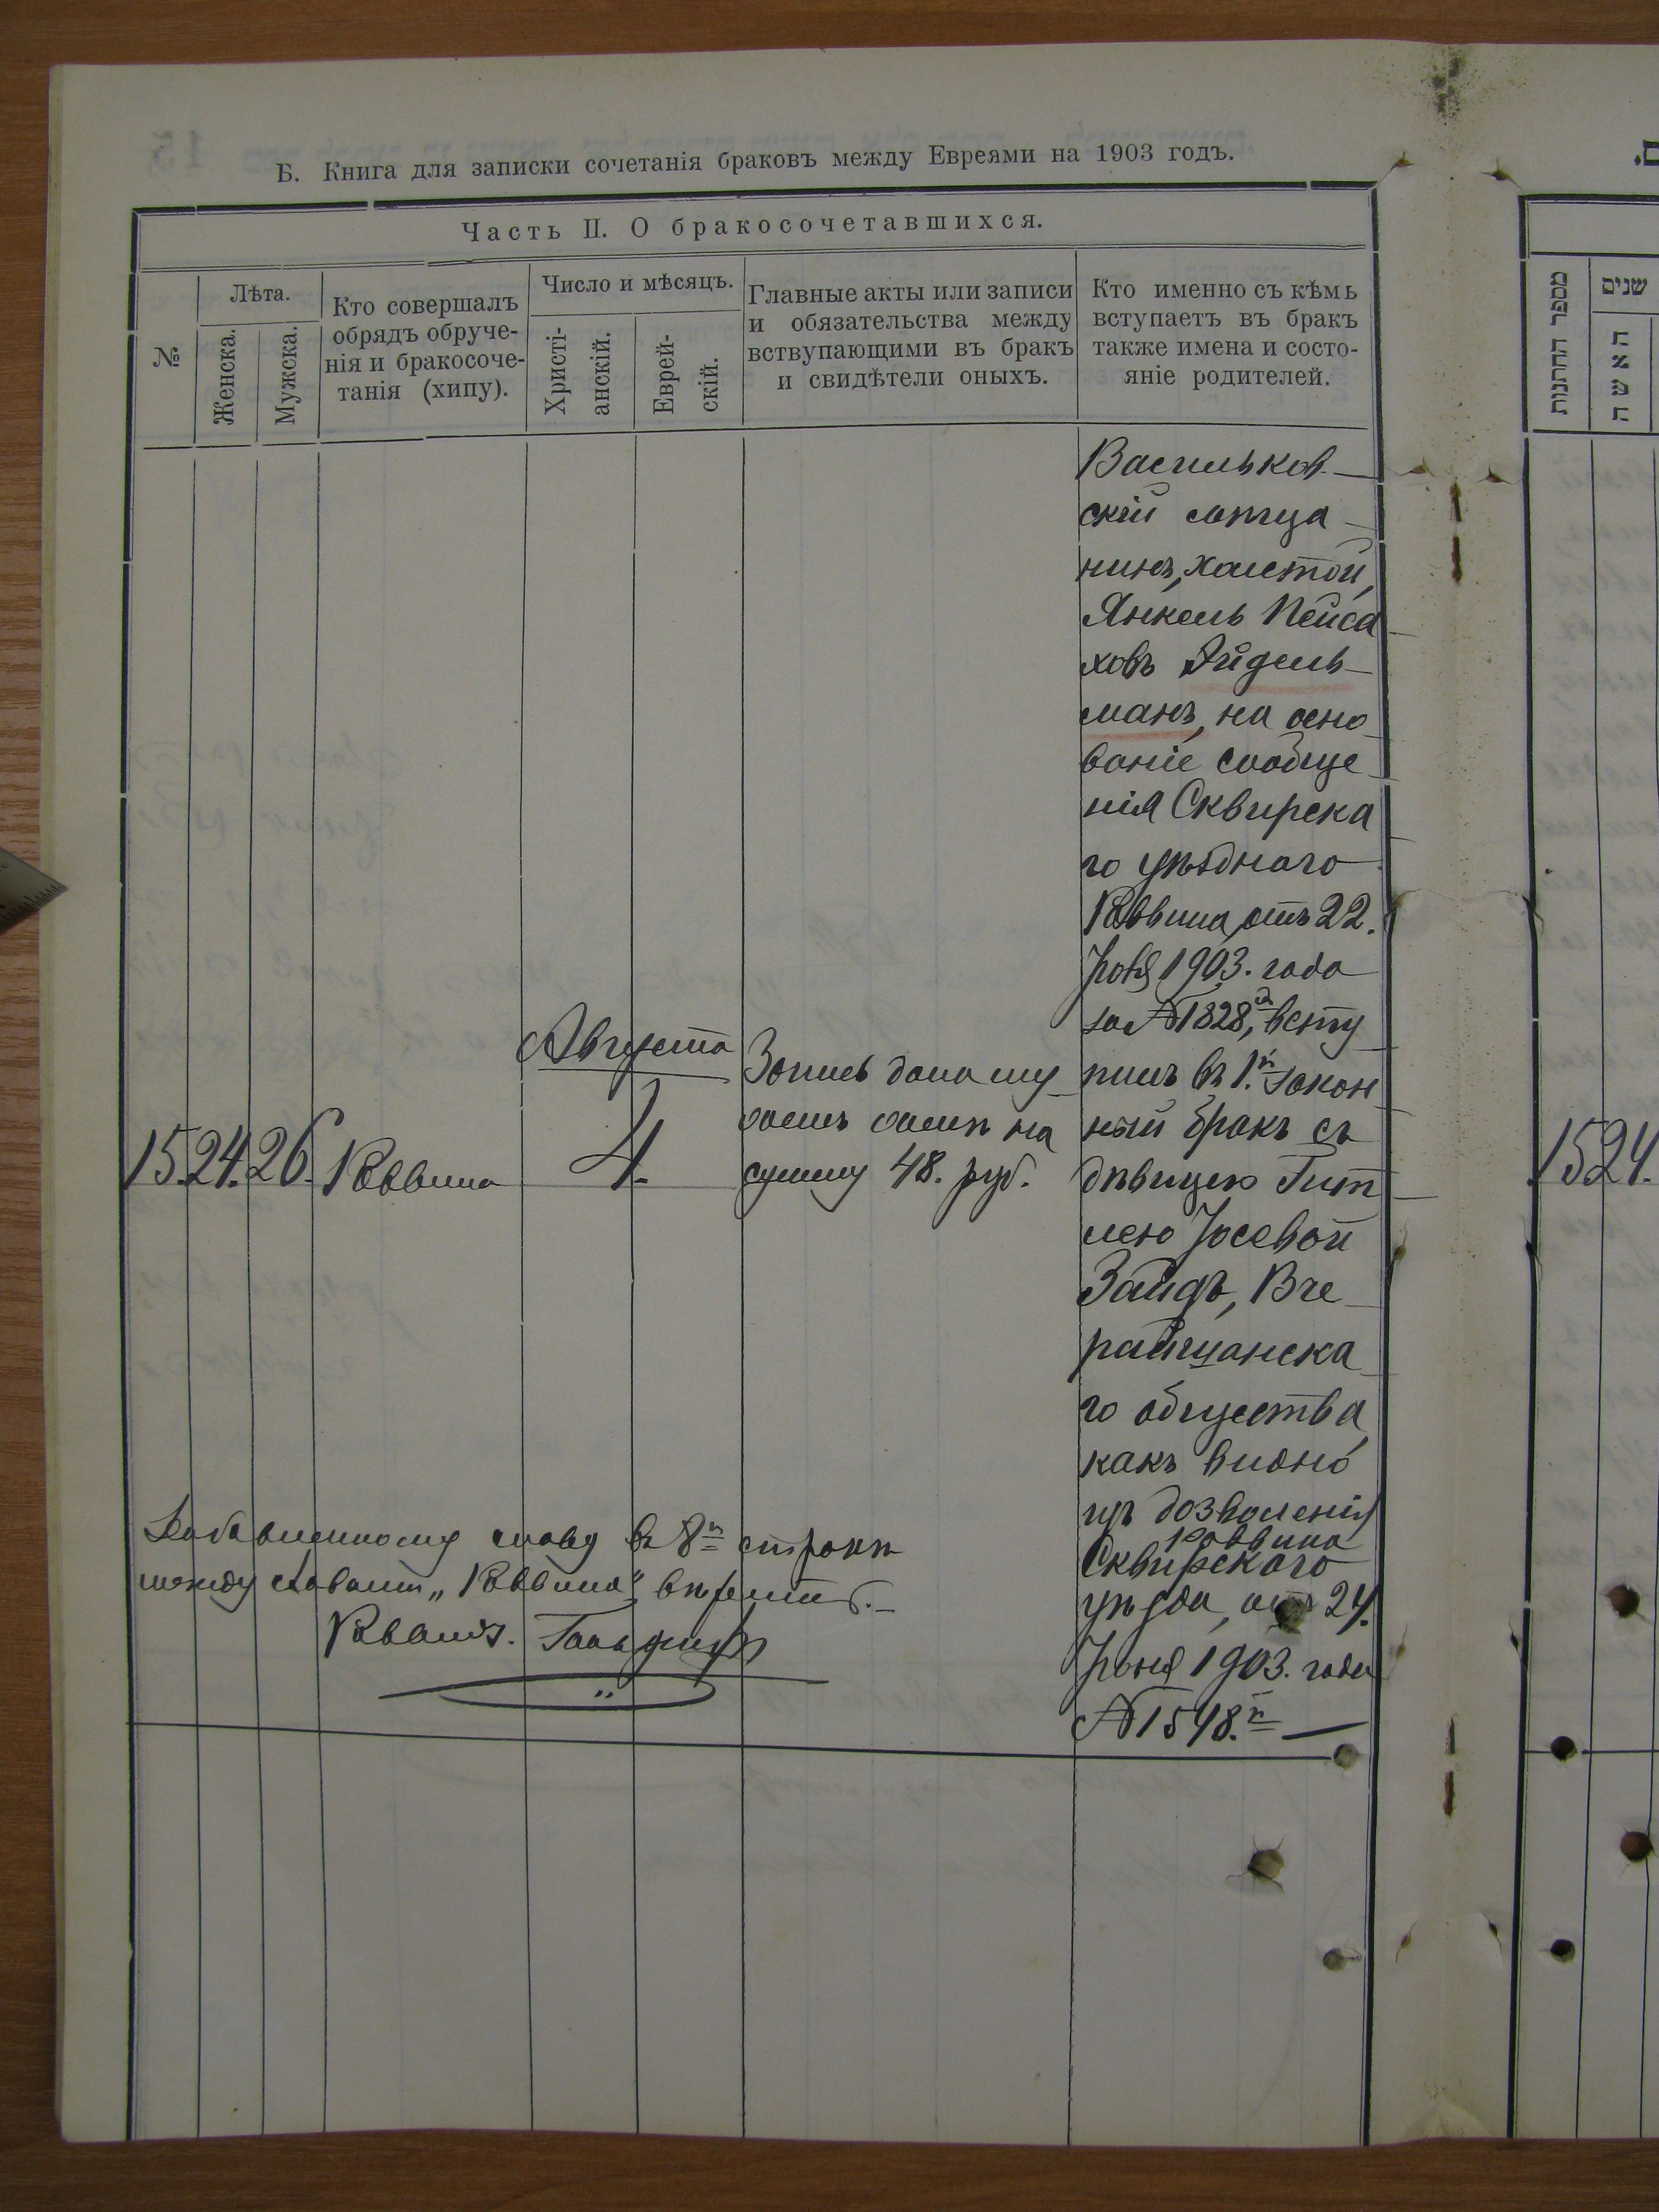 Б. Книга для записки сочетанія браковъ между Евреями на 1903 годъ.
Часть II. О бракосочетавшихся.
№
Лѣта.
Женска.
Мужска.
Кто совершалъ
обрядъ обруче-
нія и бракосоче-
танія (хипу).
Число и мѣсяцъ.
Христі-
анскій.
Еврей-
скій.
Главные акты или записи
и обязательства между
вствупающими въ бракъ
и свидѣтели оныхъ.
Кто именно съ кѣмъ
вступаетъ въ бракъ
также имена и состо-
яніе родителей.
15.
24.
26.
Раввина
Августа
4.
Запись дана
на
сумму 48. руб.
Васильков-
скій мѣща-
нинъ, холостой,
Янкель Пейса
ховъ Эйдель-
манъ, на осно
ваніе сообще
нія Сквирска
го уѣзднаго
Раввина, отъ 22.
1903. года
за №1828, всту
пилъ въ 1.й закон
ный бракъ съ
дѣвицею Гит
лею Іосевой
Зайдъ, Вче
райшанска
го общества
какъ видно
изъ дозволенія
Раввина
Сквирскаго
уѣзда, отъ 24.
Іюня 1903. года
№1548.й —
Добавленному слову въ 8й строкѣ
между словами „Раввина“ вѣрить.—
Раввинъ.
מספר החתנות
שנים
האשה
15
24.